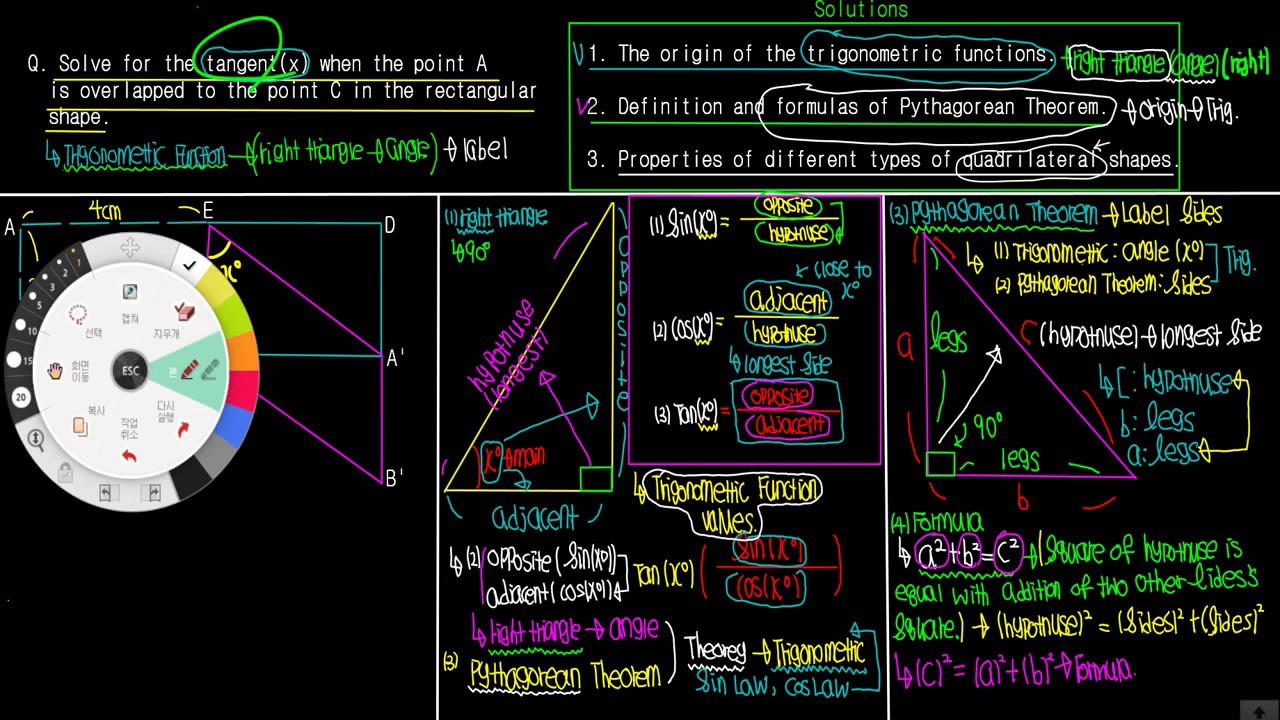 Solutions
Q. Solve for the tangent(x) when the point A
is overlapped to the point C in the rectangular
shape.
↳ Trigonometric Function → (right triangle → angle) → Label
V 1. The origin of the trigonometric functions. → (right triangle) (angle) (right)
V 2. Definition and formulas of Pythagorean Theorem. → origin → Trig.
3. Properties of different types of quadrilateral shapes.
A 4cm E D
x°
A'
B'
선택
캡쳐
지우개
화면
이동
ESC
펜
복사
작업
취소
다시
실행
1
2
3
5
10
15
20
(1) right triangle
↳ 90°
hypotnuse
(longest)
opposite
x° → main
adjacent
(1) Sin(x°) = opposite / hypotnuse
↙ close to x°
(2) Cos(x°) = adjacent / hypotnuse
↳ longest side
(3) Tan(x°) = opposite / adjacent
↳ Trigonometric Function
values.
↳ (2) opposite (sin(x°))
adjacent (cos(x°))
Tan(x°) ( sin(x°) / cos(x°) )
↳ right triangle → angle
(3) Pythagorean Theorem
Theorey → Trigonometric
Sin Law, Cos Law
(3) Pythagorean Theorem → Label Sides
↳ (1) Trigonometric : angle (x°)
(2) Pythagorean Theorem : Sides
Trig.
a
legs
c (hypotnuse) → longest side
90°
legs
b
↳ c : hypotnuse
b : legs
a : legs
(4) Formula
↳ a² + b² = c² → (Square of hypotnuse is
equal with addition of two other sides's
square.) → (hypotnuse)² = (sides)² + (sides)²
↳ (c)² = (a)² + (b)² → Formula.